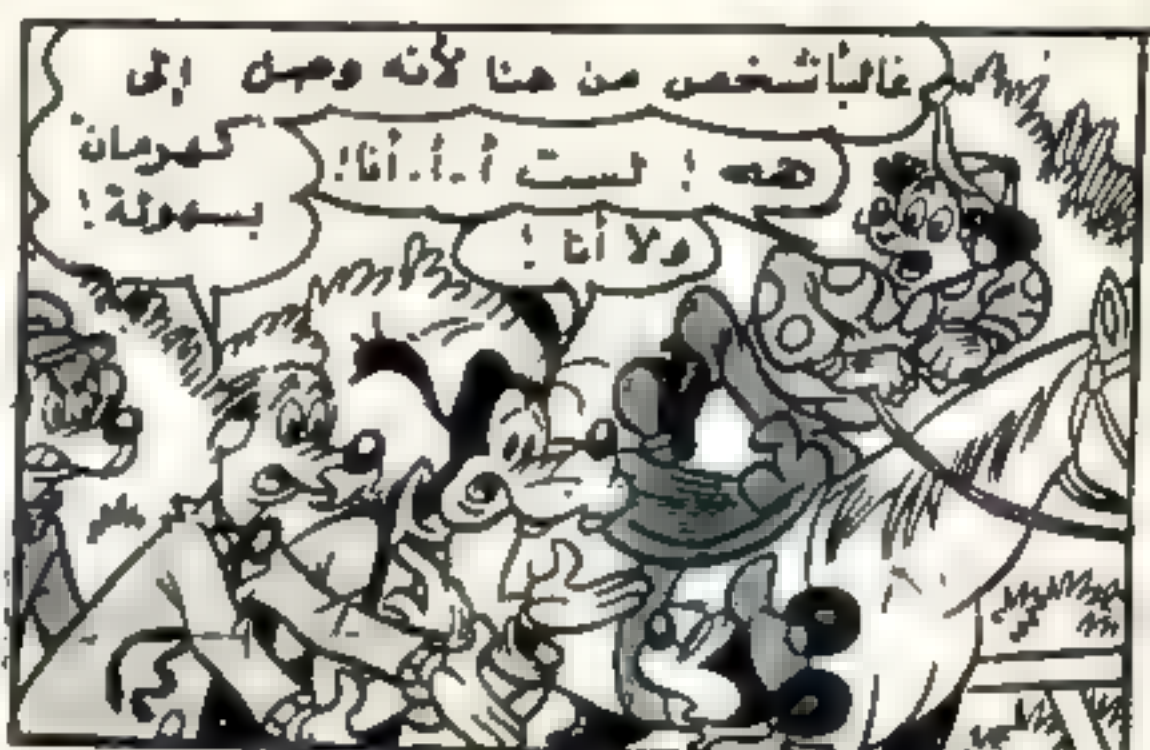 غالباً شخص من هنا لأنه وصل إلى
كهرمان
بسهولة!
هه! لست أ.أ.أنا!
ولا أنا!